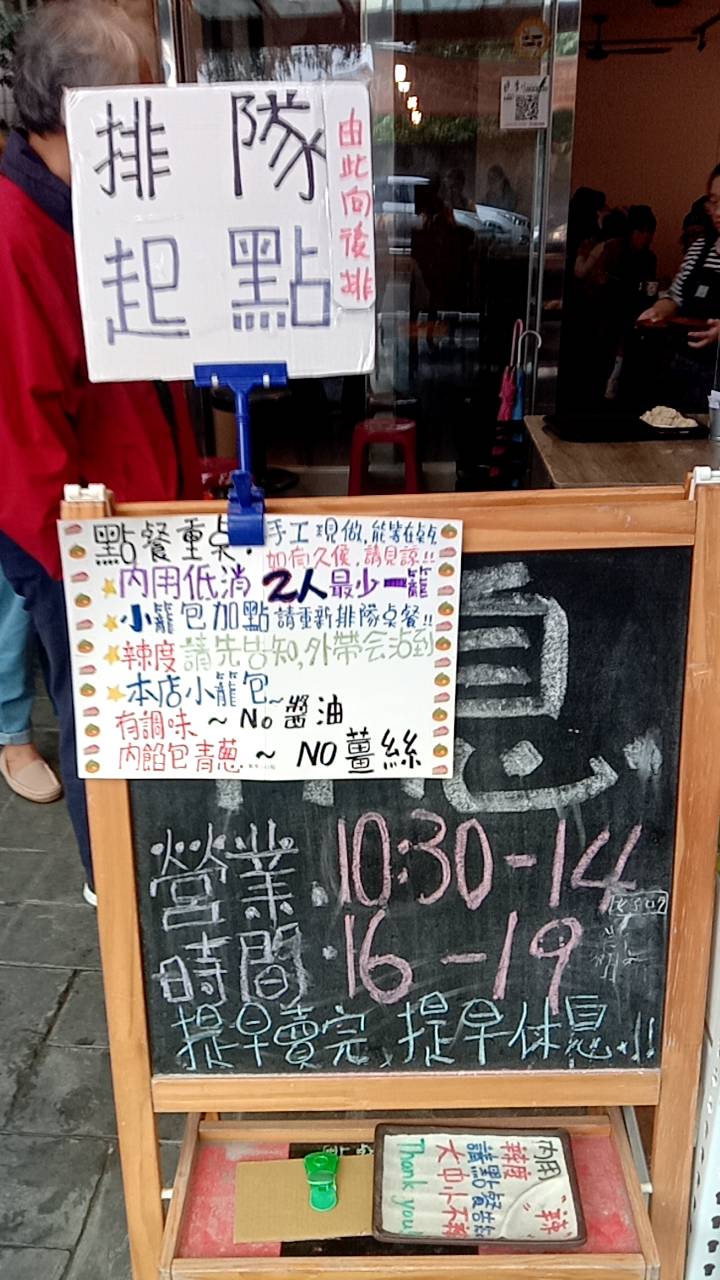 排隊
起點
由此向後排
點餐重桌.手工現做,能等在桌
如有久候,請見諒!!
內用低消 2人最少一籠
小籠包加點請重新排隊桌餐!!
辣度請先告知,外帶会沾到
本店小籠包~
有調味 ~ No 醬油
內餡包青蔥. ~ NO薑絲
息
營業.10:30-14
時間.16-19
提早賣完,提早休息.!!
內用"辣"
辣度
請點餐告知
大中小不辣
Thank you!